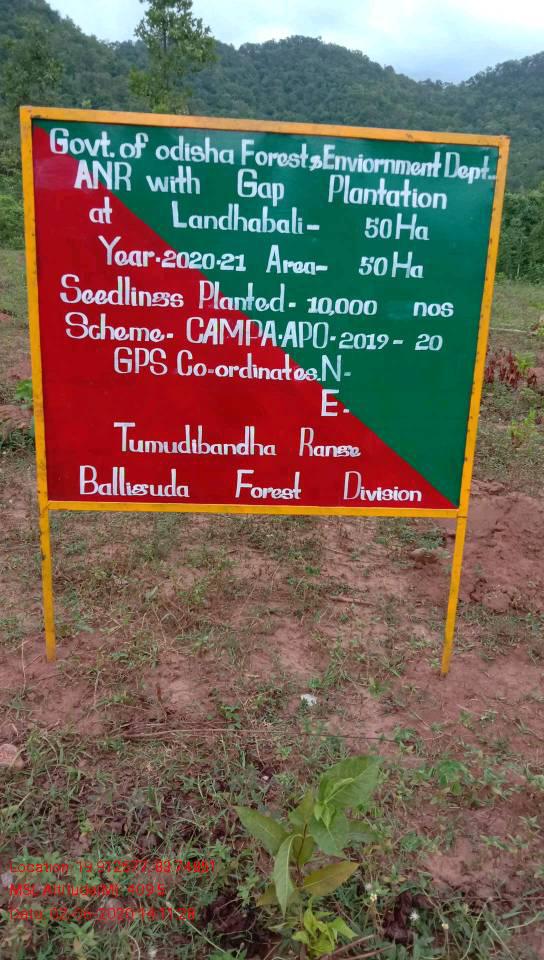 Govt. of odisha Forest & Enviornment Dept.
ANR with Gap Plantation
at Landhabali- 50Ha
Year-2020-21 Area- 50Ha
Seedlings Planted- 10,000 nos
Scheme- CAMPA-APO-2019-20
GPS Co-ordinates.N-
E-
Tumudibandha Range
Balliguda Forest Division
Location
MSL Altitude(M): 409.5
Date: 02-06-2020 14:11:28